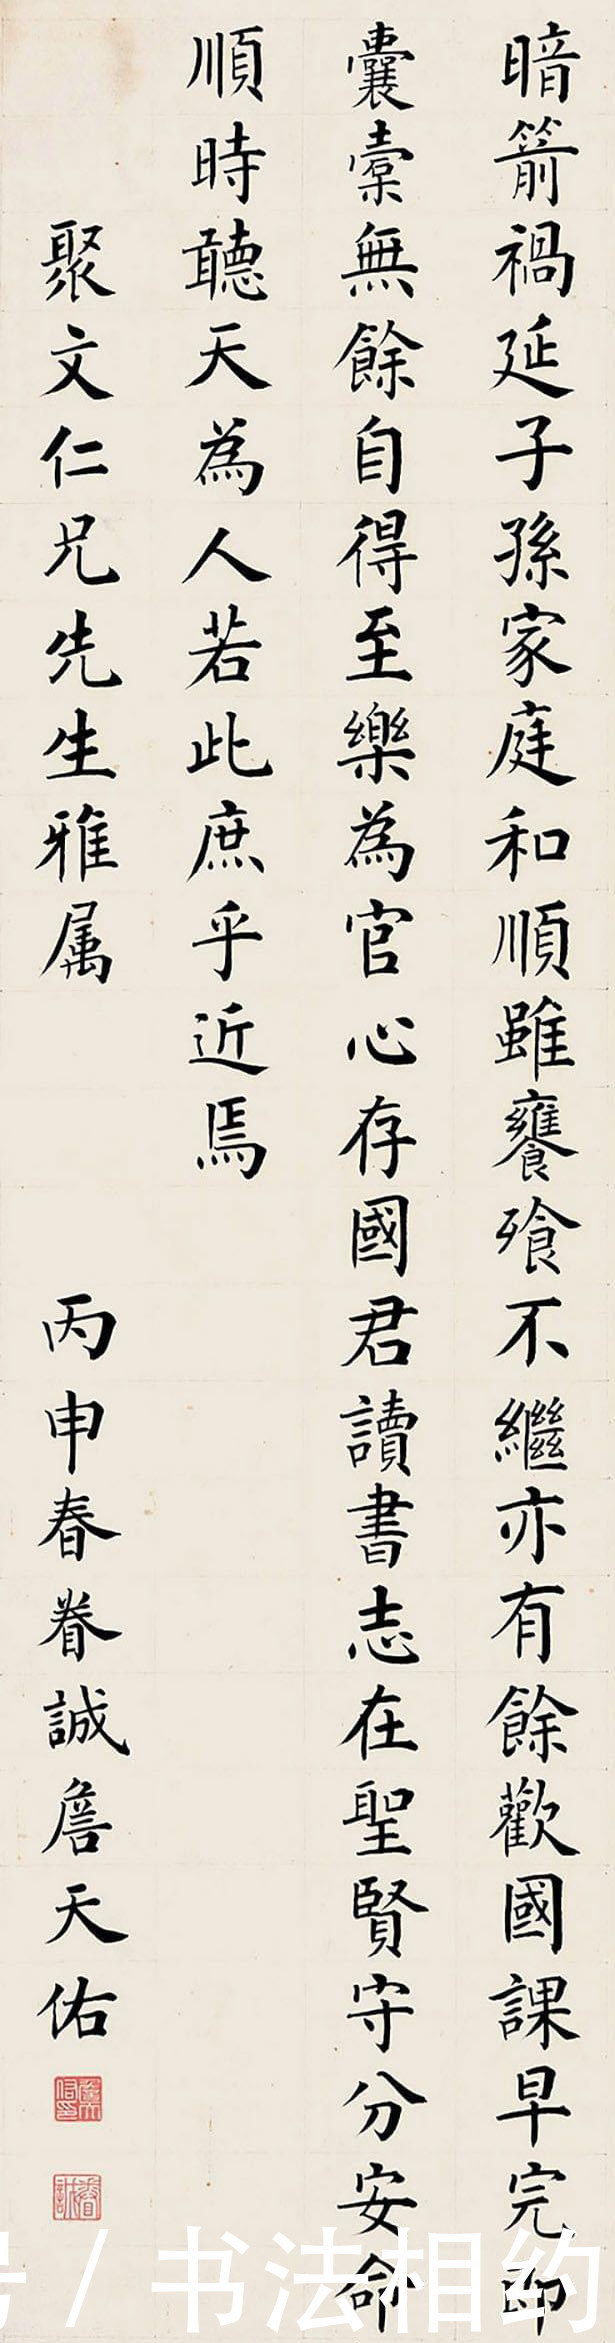 暗箭禍延子孫家庭和順雖饔飱不繼亦有餘歡國課早完即
囊橐無餘自得至樂為官心存國君讀書志在聖賢守分安命
順時聽天為人若此庶乎近焉
聚文仁兄先生雅属 丙申春眷誠詹天佑
号/书法相约